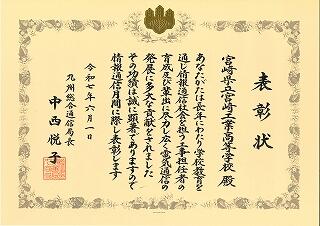 表彰状
宮崎県立宮崎工業高等学校 殿
あなたがたは長年にわたり学校教育を
通じ情報通信社会を担う工事担任者の
育成及び輩出に尽力し広く電気通信の
発展に多大な貢献をされました
その功績は誠に顕著でありますので
情報通信月間に際し表彰します
令和七年六月一日
九州総合通信局長
中西悦子